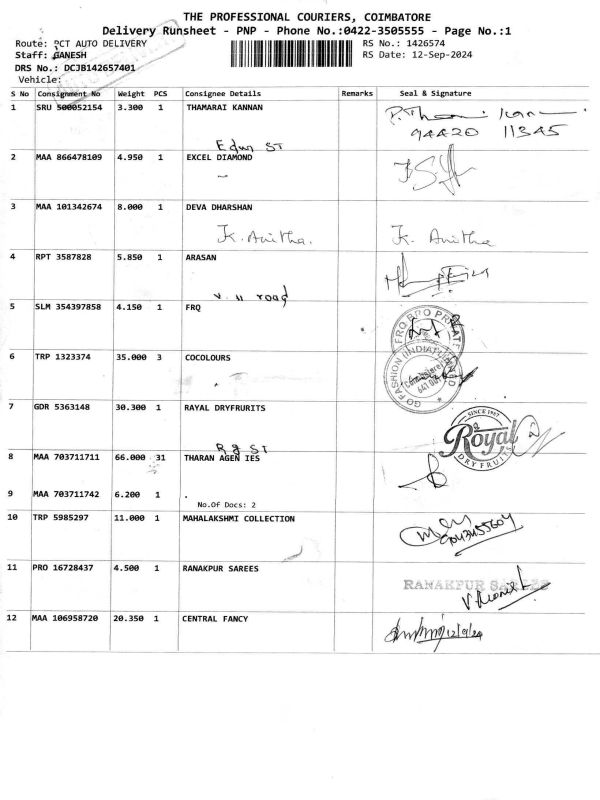 THE PROFESSIONAL COURIERS, COIMBATORE
Delivery Runsheet - PNP - Phone No.:0422-3505555 - Page No.:1
Route: PCT AUTO DELIVERY RS No.: 1426574
Staff: GANESH RS Date: 12-Sep-2024
DRS No.: DCJB142657401
Vehicle:
S No Consignment No Weight PCS Consignee Details Remarks Seal & Signature
1 SRU 500052154 3.300 1 THAMARAI KANNAN
94420 11345
Edur ST
2 MAA 866478109 4.950 1 EXCEL DIAMOND
3 MAA 101342674 8.000 1 DEVA DHARSHAN
K. Anitha. K. Anitha
4 RPT 3587828 5.850 1 ARASAN
V. H road
5 SLM 354397858 4.150 1 FRQ
FRQ BPO PRIVATE
6 TRP 1323374 35.000 3 COCOLOURS
GO FASHION (INDIA)
7 GDR 5363148 30.300 1 RAYAL DRYFRURITS
SINCE 1997
Royal
DRY FRUITS
Rg ST
8 MAA 703711711 66.000 31 THARAN AGEN IES
9 MAA 703711742 6.200 1 .
No.Of Docs: 2
10 TRP 5985297 11.000 1 MAHALAKSHMI COLLECTION
11 PRO 16728437 4.500 1 RANAKPUR SAREES
RANAKPUR SAREES
12 MAA 106958720 20.350 1 CENTRAL FANCY
12/9/24